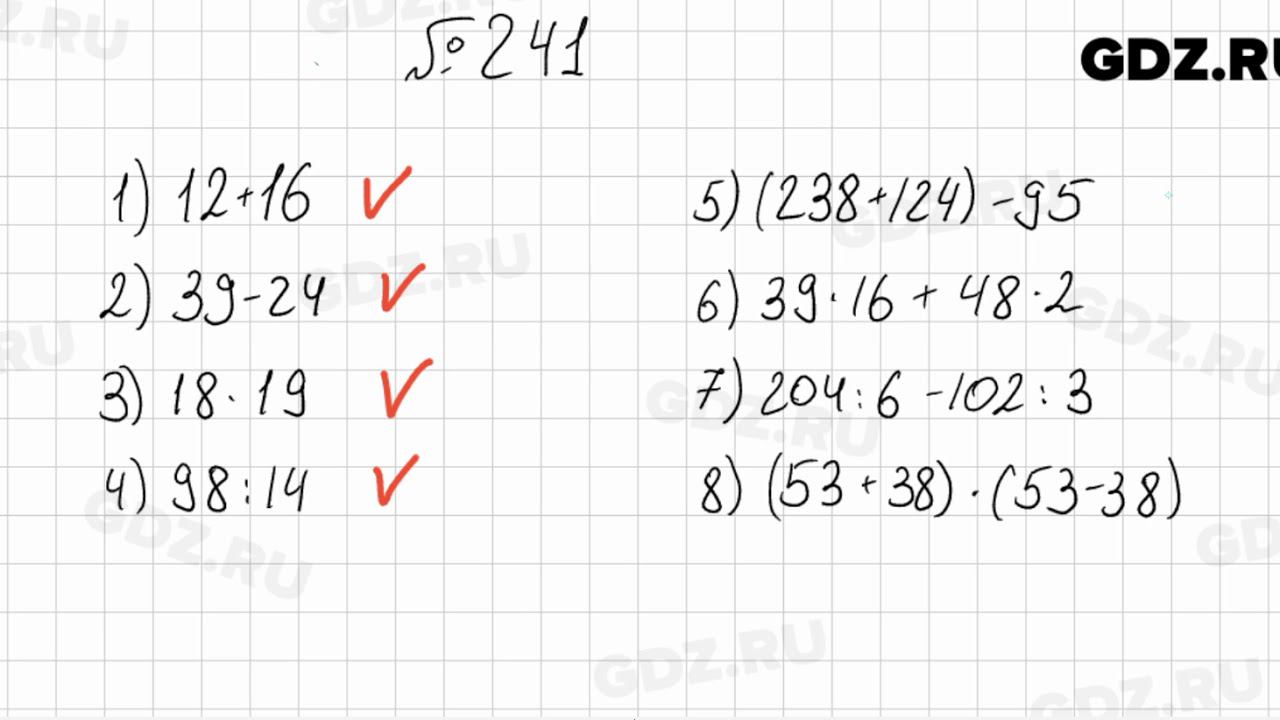 № 241
GDZ.RU
1) 12+16 ✓
2) 39-24 ✓
3) 18·19 ✓
4) 98:14 ✓
5) (238+124)-95
6) 39·16 + 48·2
7) 204:6 -102:3
8) (53+38)·(53-38)
GDZ.RU
GDZ.RU
GDZ.RU
GDZ.RU
GDZ.RU
GDZ.RU
GDZ.RU
GDZ.RU
GDZ.RU
GDZ.RU